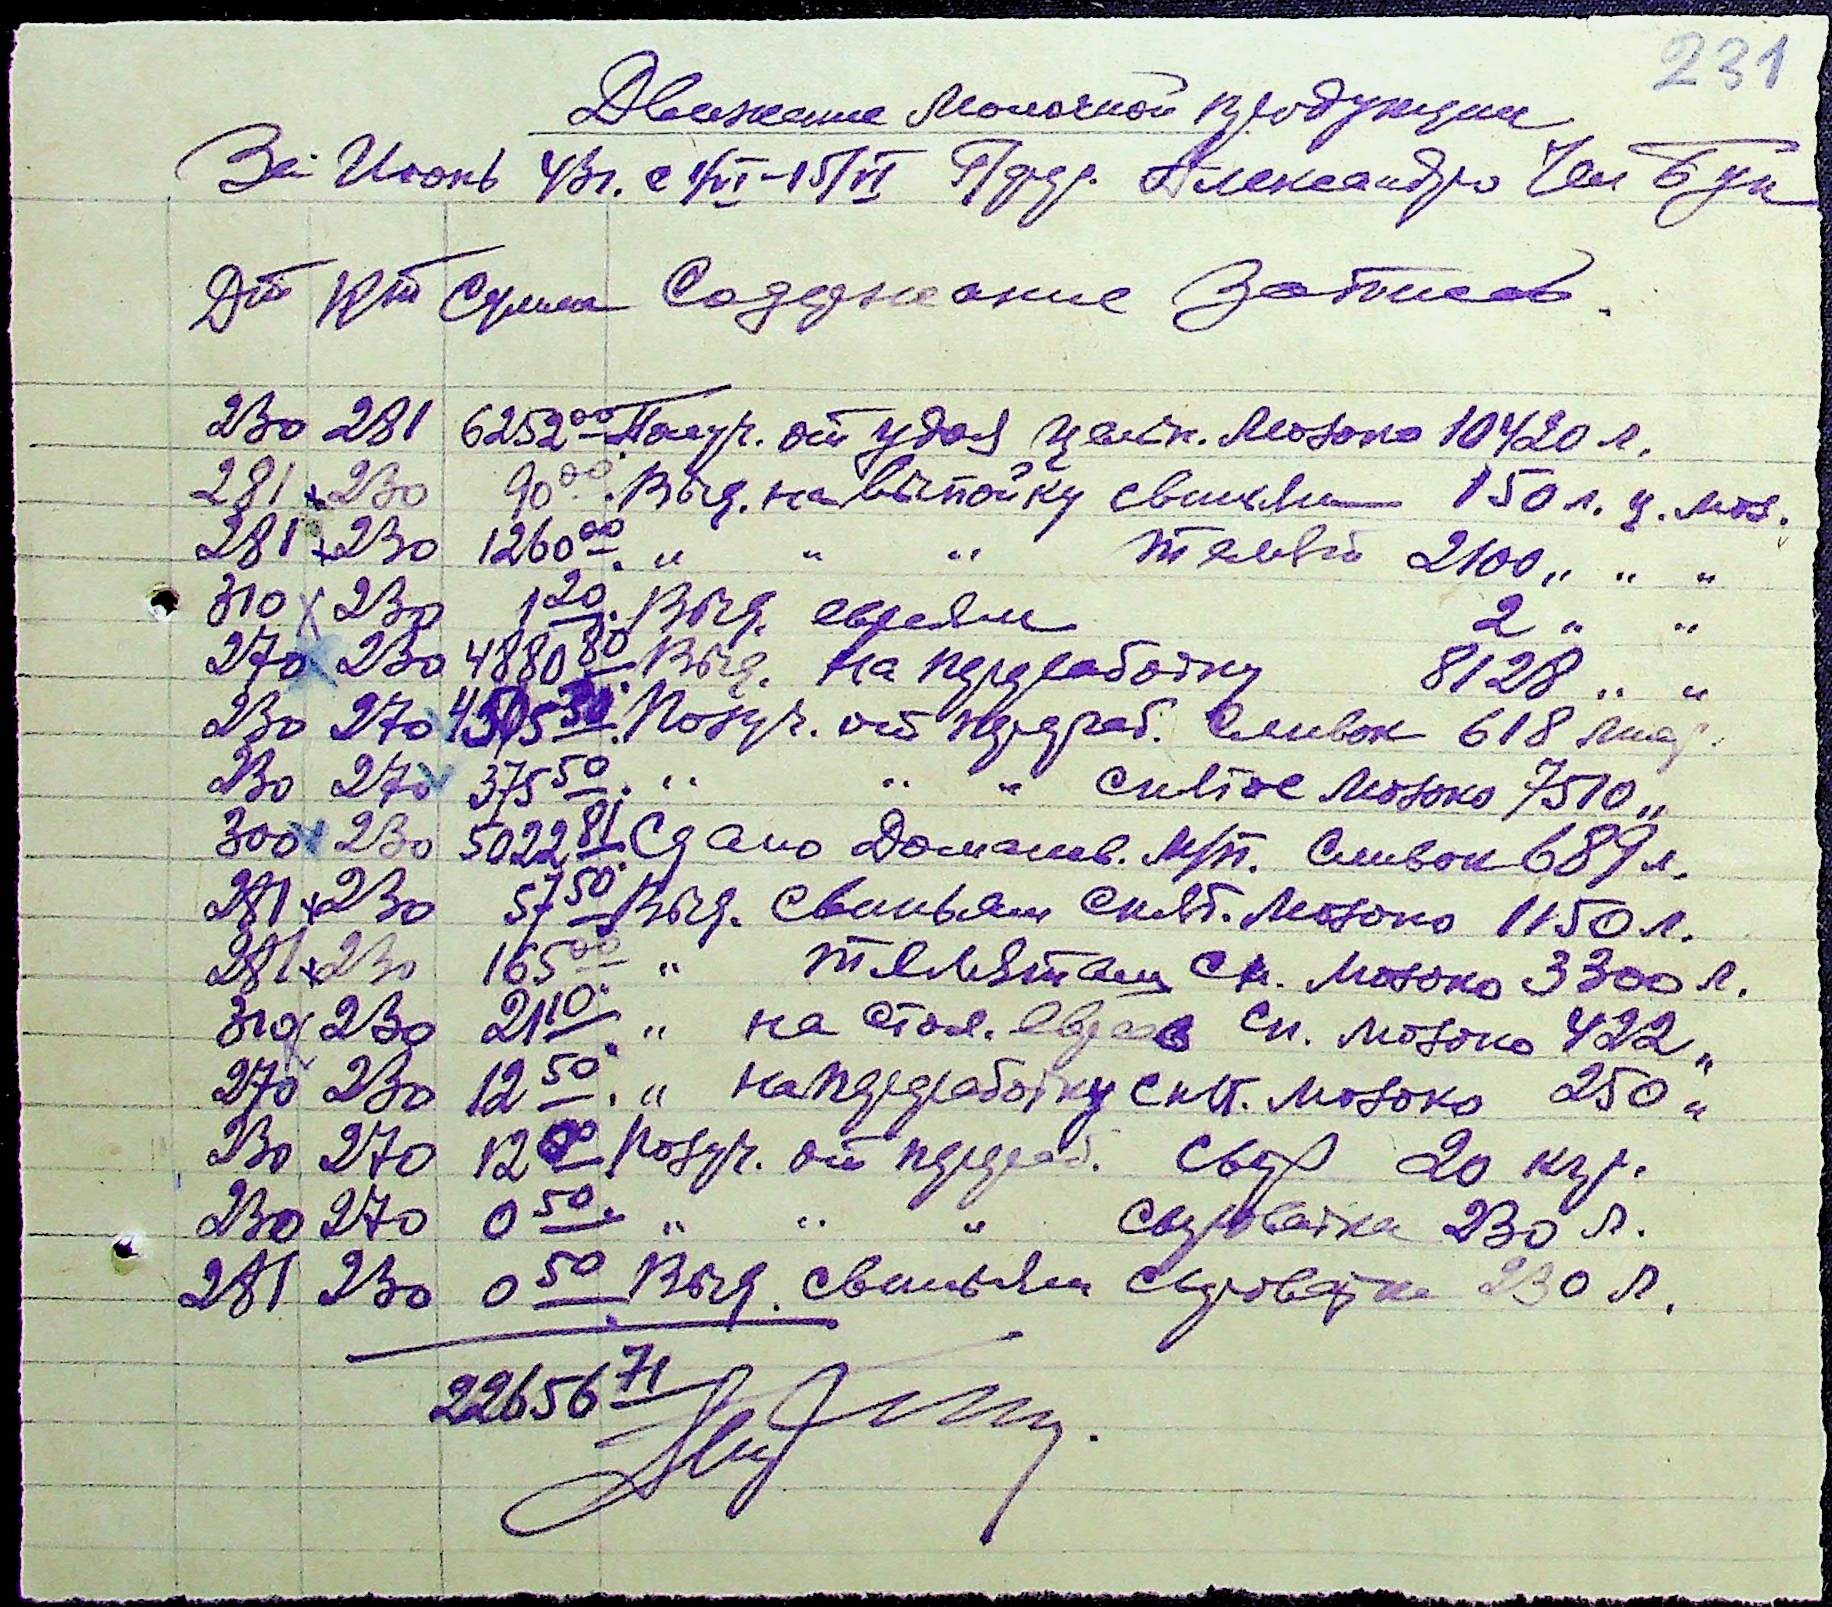 231
Движение молочной продукции
За Июнь 43г. с 1/VI-15/VI Пред. Александро
Дт Кт Сумма Содержание Записов.
230 281 6252 00 Получ. от удоя цельн. молоко 10420 л.
281 230 90 00. Выд. на выпойку свиньям 150 л. ц. мол.
281 230 1260 00. " " " телят 2100 " " "
310 230 1 20. Выд. евреям 2 " "
270 230 4880 80. Выд. на переработку 8128 " "
230 270 4505 50. Получ. от перераб. сливок 618 литр.
230 270 375 50. " " " снятое молоко 7510 "
300 230 5022 81. Сдано М/П. сливок 689 л.
281 230 57 50. Выд. свиньям снят. молоко 1150 л.
281 230 165 00 " телятам сн. молоко 3300 л.
310 230 21 10. " на стол. евреев сн. молоко 422 "
270 230 12 50. " на переработку снят. молоко 250 "
230 270 12 00 Получ. от перераб. сыр 20 кгр.
230 270 0 50. " " " сыроватка 230 л.
281 230 0 50 Выд. свиньям сыроватки 230 л.
22656 71